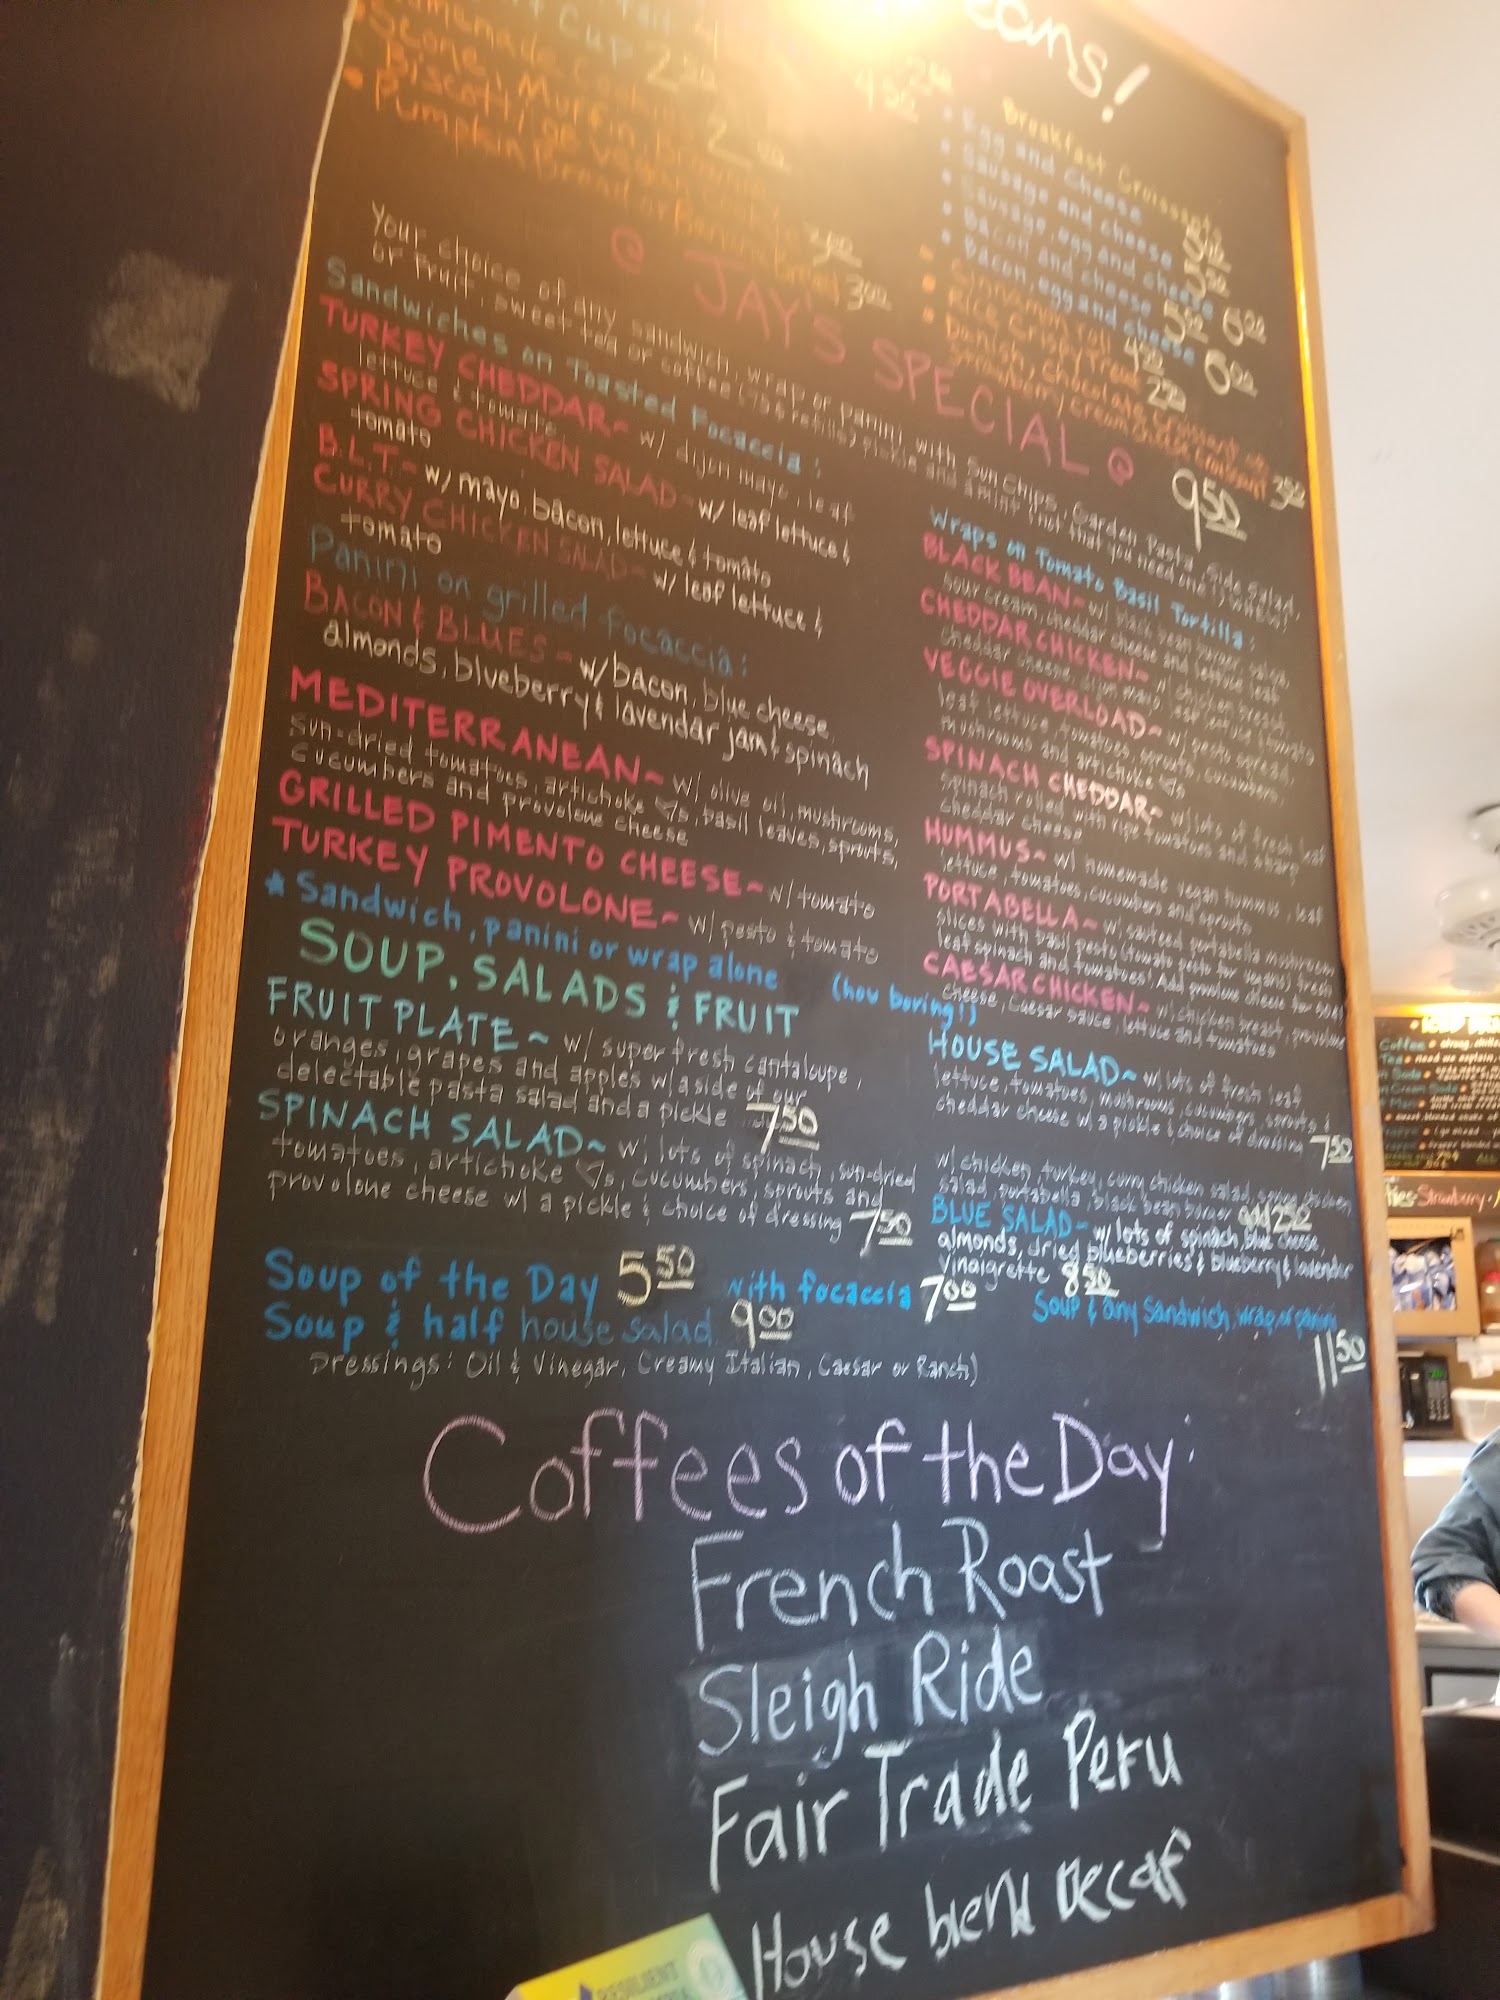 eans!
Cup 2.00
4.50
Scone, Muffin, brownie 2.00
Biscotti/ge vegan cookie 3.00
Pumpkin Bread or Banana Bread 3.00
Breakfast Croissants
• Egg and cheese
• Sausage and cheese 5.00
• Sausage, egg and cheese 6.00
• Bacon and cheese 5.00
• Bacon, egg and cheese 6.00
• Cinnamon roll
• Rice Crispy Treat
• Danish, chocolate croissant or
Strawberry Cream cheese Croissant
@ JAY'S SPECIAL @ 9.50
Your choice of any sandwich, wrap or panini with Sun Chips, Garden Pasta, Side Salad,
or fruit, sweet tea or coffee pickle and a mint that you need one!) whew!
Sandwiches on Toasted Focaccia:
TURKEY CHEDDAR~ w/ dijon mayo, leaf
lettuce & tomato
SPRING CHICKEN SALAD~ w/ leaf lettuce &
tomato
B.L.T.~ w/ mayo, bacon, lettuce & tomato
CURRY CHICKEN SALAD~ w/ leaf lettuce &
tomato
Panini on grilled focaccia:
BACON & BLUES~ w/ bacon, blue cheese
almonds, blueberry & lavendar jam & spinach
MEDITERRANEAN~ w/ olive oil, mushrooms,
sun-dried tomatoes, artichoke ♡s, basil leaves, sprouts,
cucumbers and provolone cheese
GRILLED PIMENTO CHEESE~ w/ tomato
TURKEY PROVOLONE~ w/ pesto & tomato
* Sandwich, panini or wrap alone (how boring!)
Wraps on Tomato Basil Tortilla:
BLACK BEAN~ w/ black bean burger, salsa,
sour cream, cheddar cheese and lettuce leaf
CHEDDAR CHICKEN~ w/ chicken breast,
cheddar cheese, dijon mayo, leaf lettuce & tomato
VEGGIE OVERLOAD~ w/ pesto spread,
leaf lettuce, tomatoes, sprouts, cucumbers,
mushrooms and artichoke ♡s
SPINACH CHEDDAR~ w/ lots of fresh leaf
spinach rolled with ripe tomatoes and sharp
cheddar cheese
HUMMUS~ w/ homemade vegan hummus, leaf
lettuce, tomatoes, cucumbers and sprouts
PORTABELLA~ w/ sauteed portabella mushroom
slices with basil pesto (tomato pesto for vegans) fresh
leaf spinach and tomatoes! Add provolone cheese for
CAESAR CHICKEN~ w/ chicken breast, provolone
cheese, Caesar sauce, lettuce and tomatoes
SOUP, SALADS & FRUIT
FRUIT PLATE~ w/ super fresh cantaloupe,
oranges, grapes and apples w/ a side of our
delectable pasta salad and a pickle 7.50
SPINACH SALAD~ w/ lots of spinach, sun-dried
tomatoes, artichoke ♡s, cucumbers, sprouts and
provolone cheese w/ a pickle & choice of dressing 7.50
HOUSE SALAD~ w/ lots of fresh leaf
lettuce, tomatoes, mushrooms, cucumbers, sprouts &
cheddar cheese w/ a pickle & choice of dressing 7.50
w/ chicken, turkey, curry chicken salad, spring chicken
salad, portabella, black bean burger add 2.50
BLUE SALAD~ w/ lots of spinach, blue cheese,
almonds, dried blueberries & blueberry & lavender
vinaigrette 8.50
Soup of the Day 5.50 with focaccia 7.00
Soup & any Sandwich, wrap, or panini
11.50
Soup & half house salad 9.00
Dressings: Oil & Vinegar, Creamy Italian, Caesar or Ranch)
Coffees of the Day:
French Roast
Sleigh Ride
Fair Trade Peru
House blend Decaf
Coffee
Strawberry
RESILIENT